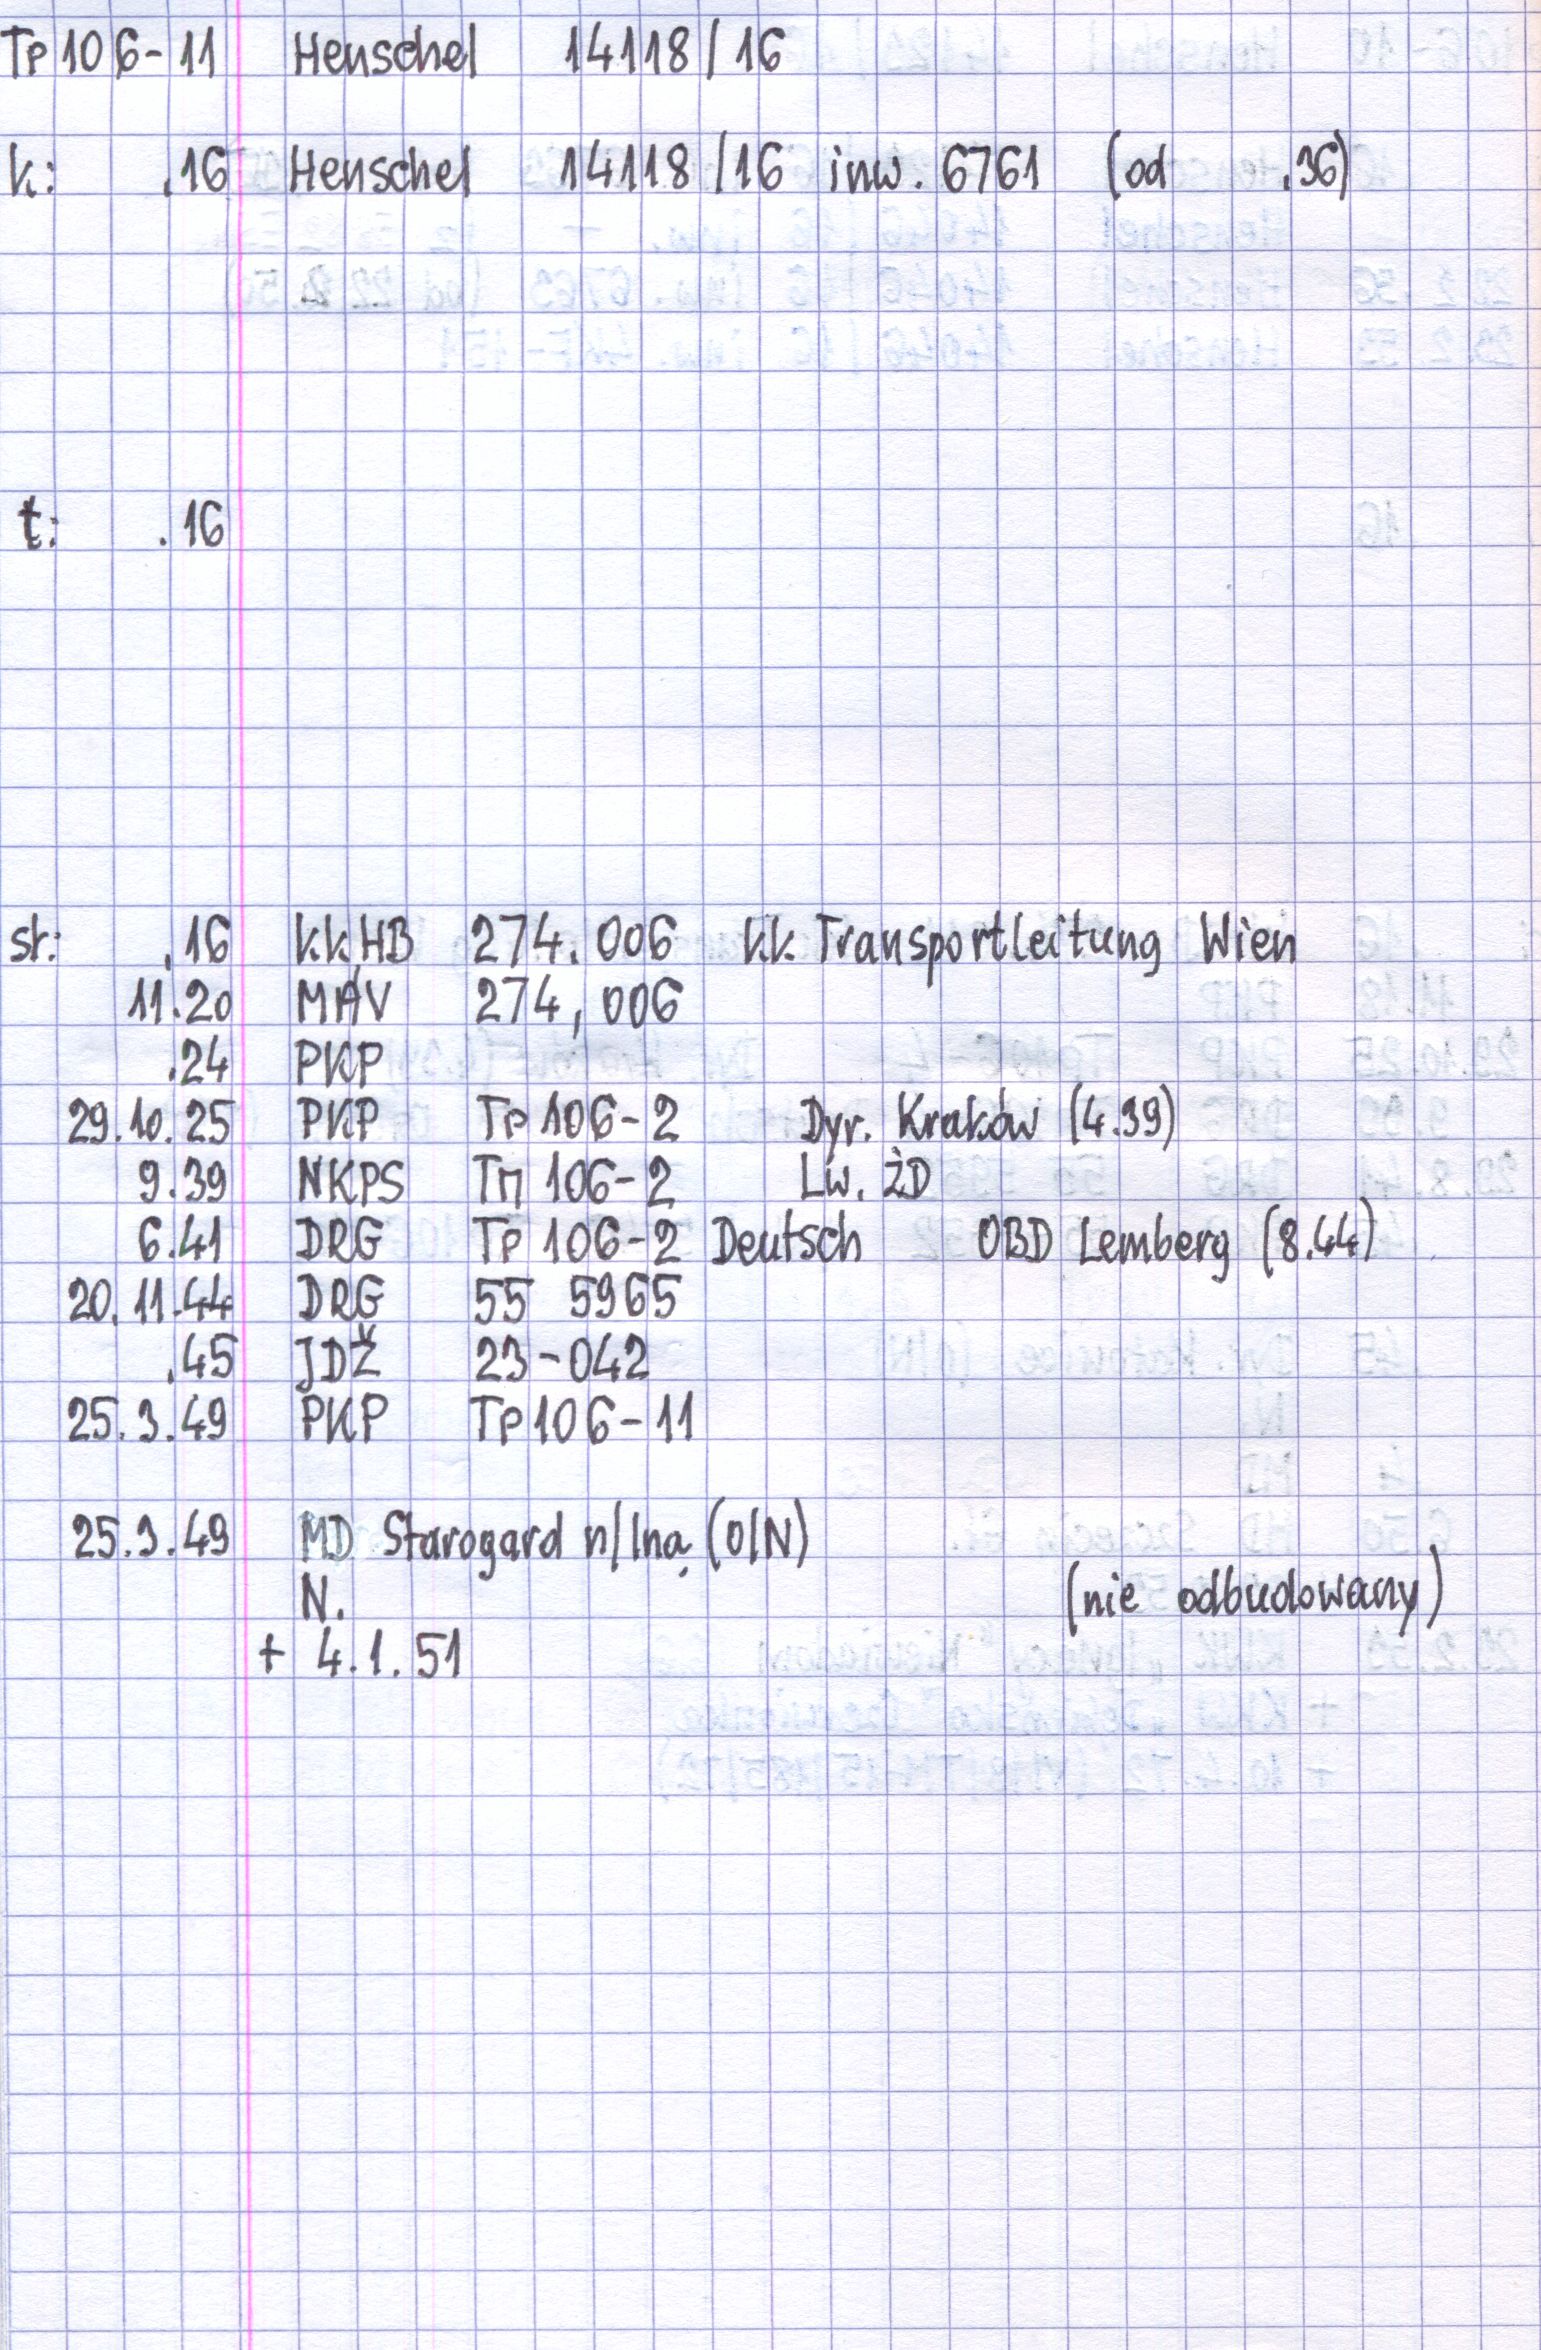 Tp 106-11 Henschel 14118/16
k: .16 Henschel 14118/16 inw. 6761 (od .36)
t: .16
st: .16 kkHB 274.006 kk Transportleitung Wien
11.20 MÁV 274,006
.24 PKP
29.10.25 PKP Tp 106-2 Dyr. Kraków (4.39)
9.39 NKPS Тп 106-2 Lw. ŻD
6.41 DRG Tp 106-2 Deutsch OBD Lemberg (8.44)
20.11.44 DRG 55 5965
.45 JDŽ 23-042
25.3.49 PKP Tp 106-11
25.3.49 MD Starogard n/Iną (O/N)
N. (nie odbudowany)
+ 4.1.51